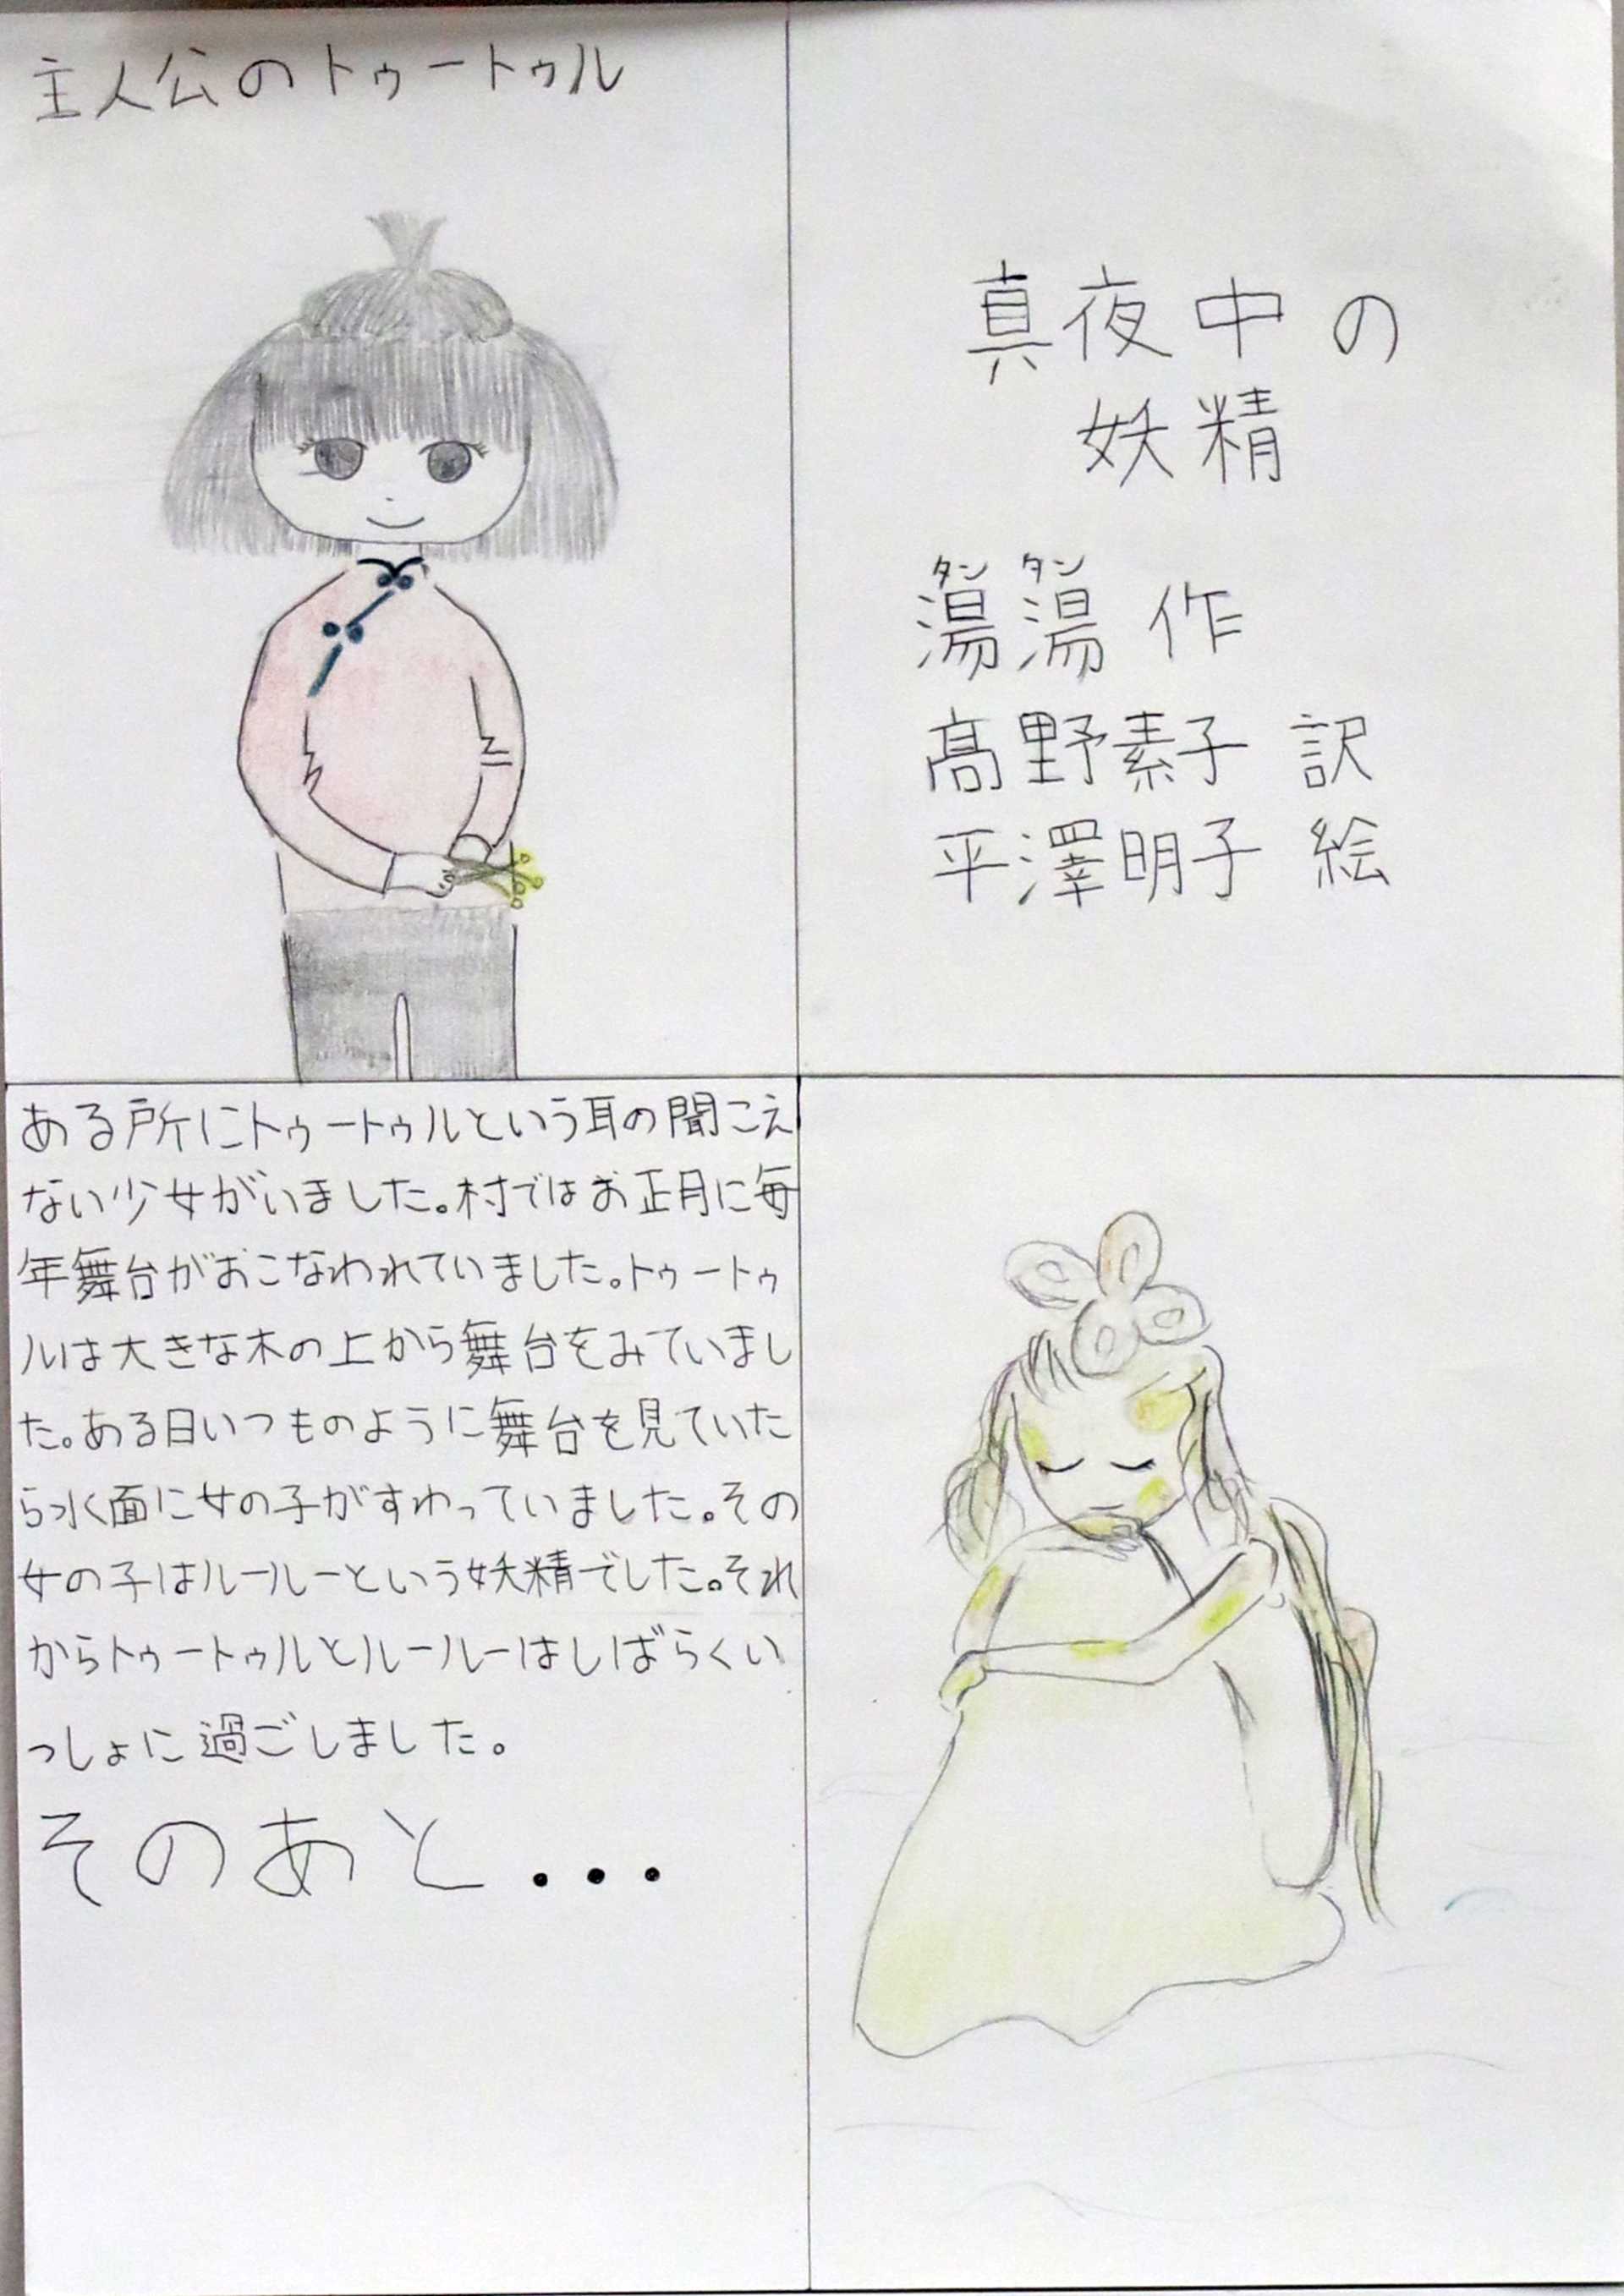 主人公のトゥートゥル
真夜中の
妖精
タン タン
湯湯 作
髙野素子 訳
平澤明子 絵
ある所にトゥートゥルという耳の聞こえ
ない少女がいました。村ではお正月に毎
年舞台がおこなわれていました。トゥートゥ
ルは大きな木の上から舞台をみていまし
た。ある日いつものように舞台を見ていた
ら水面に女の子がすわっていました。その
女の子はルールーという妖精でした。それ
からトゥートゥルとルールーはしばらくい
っしょに過ごしました。
そのあと...